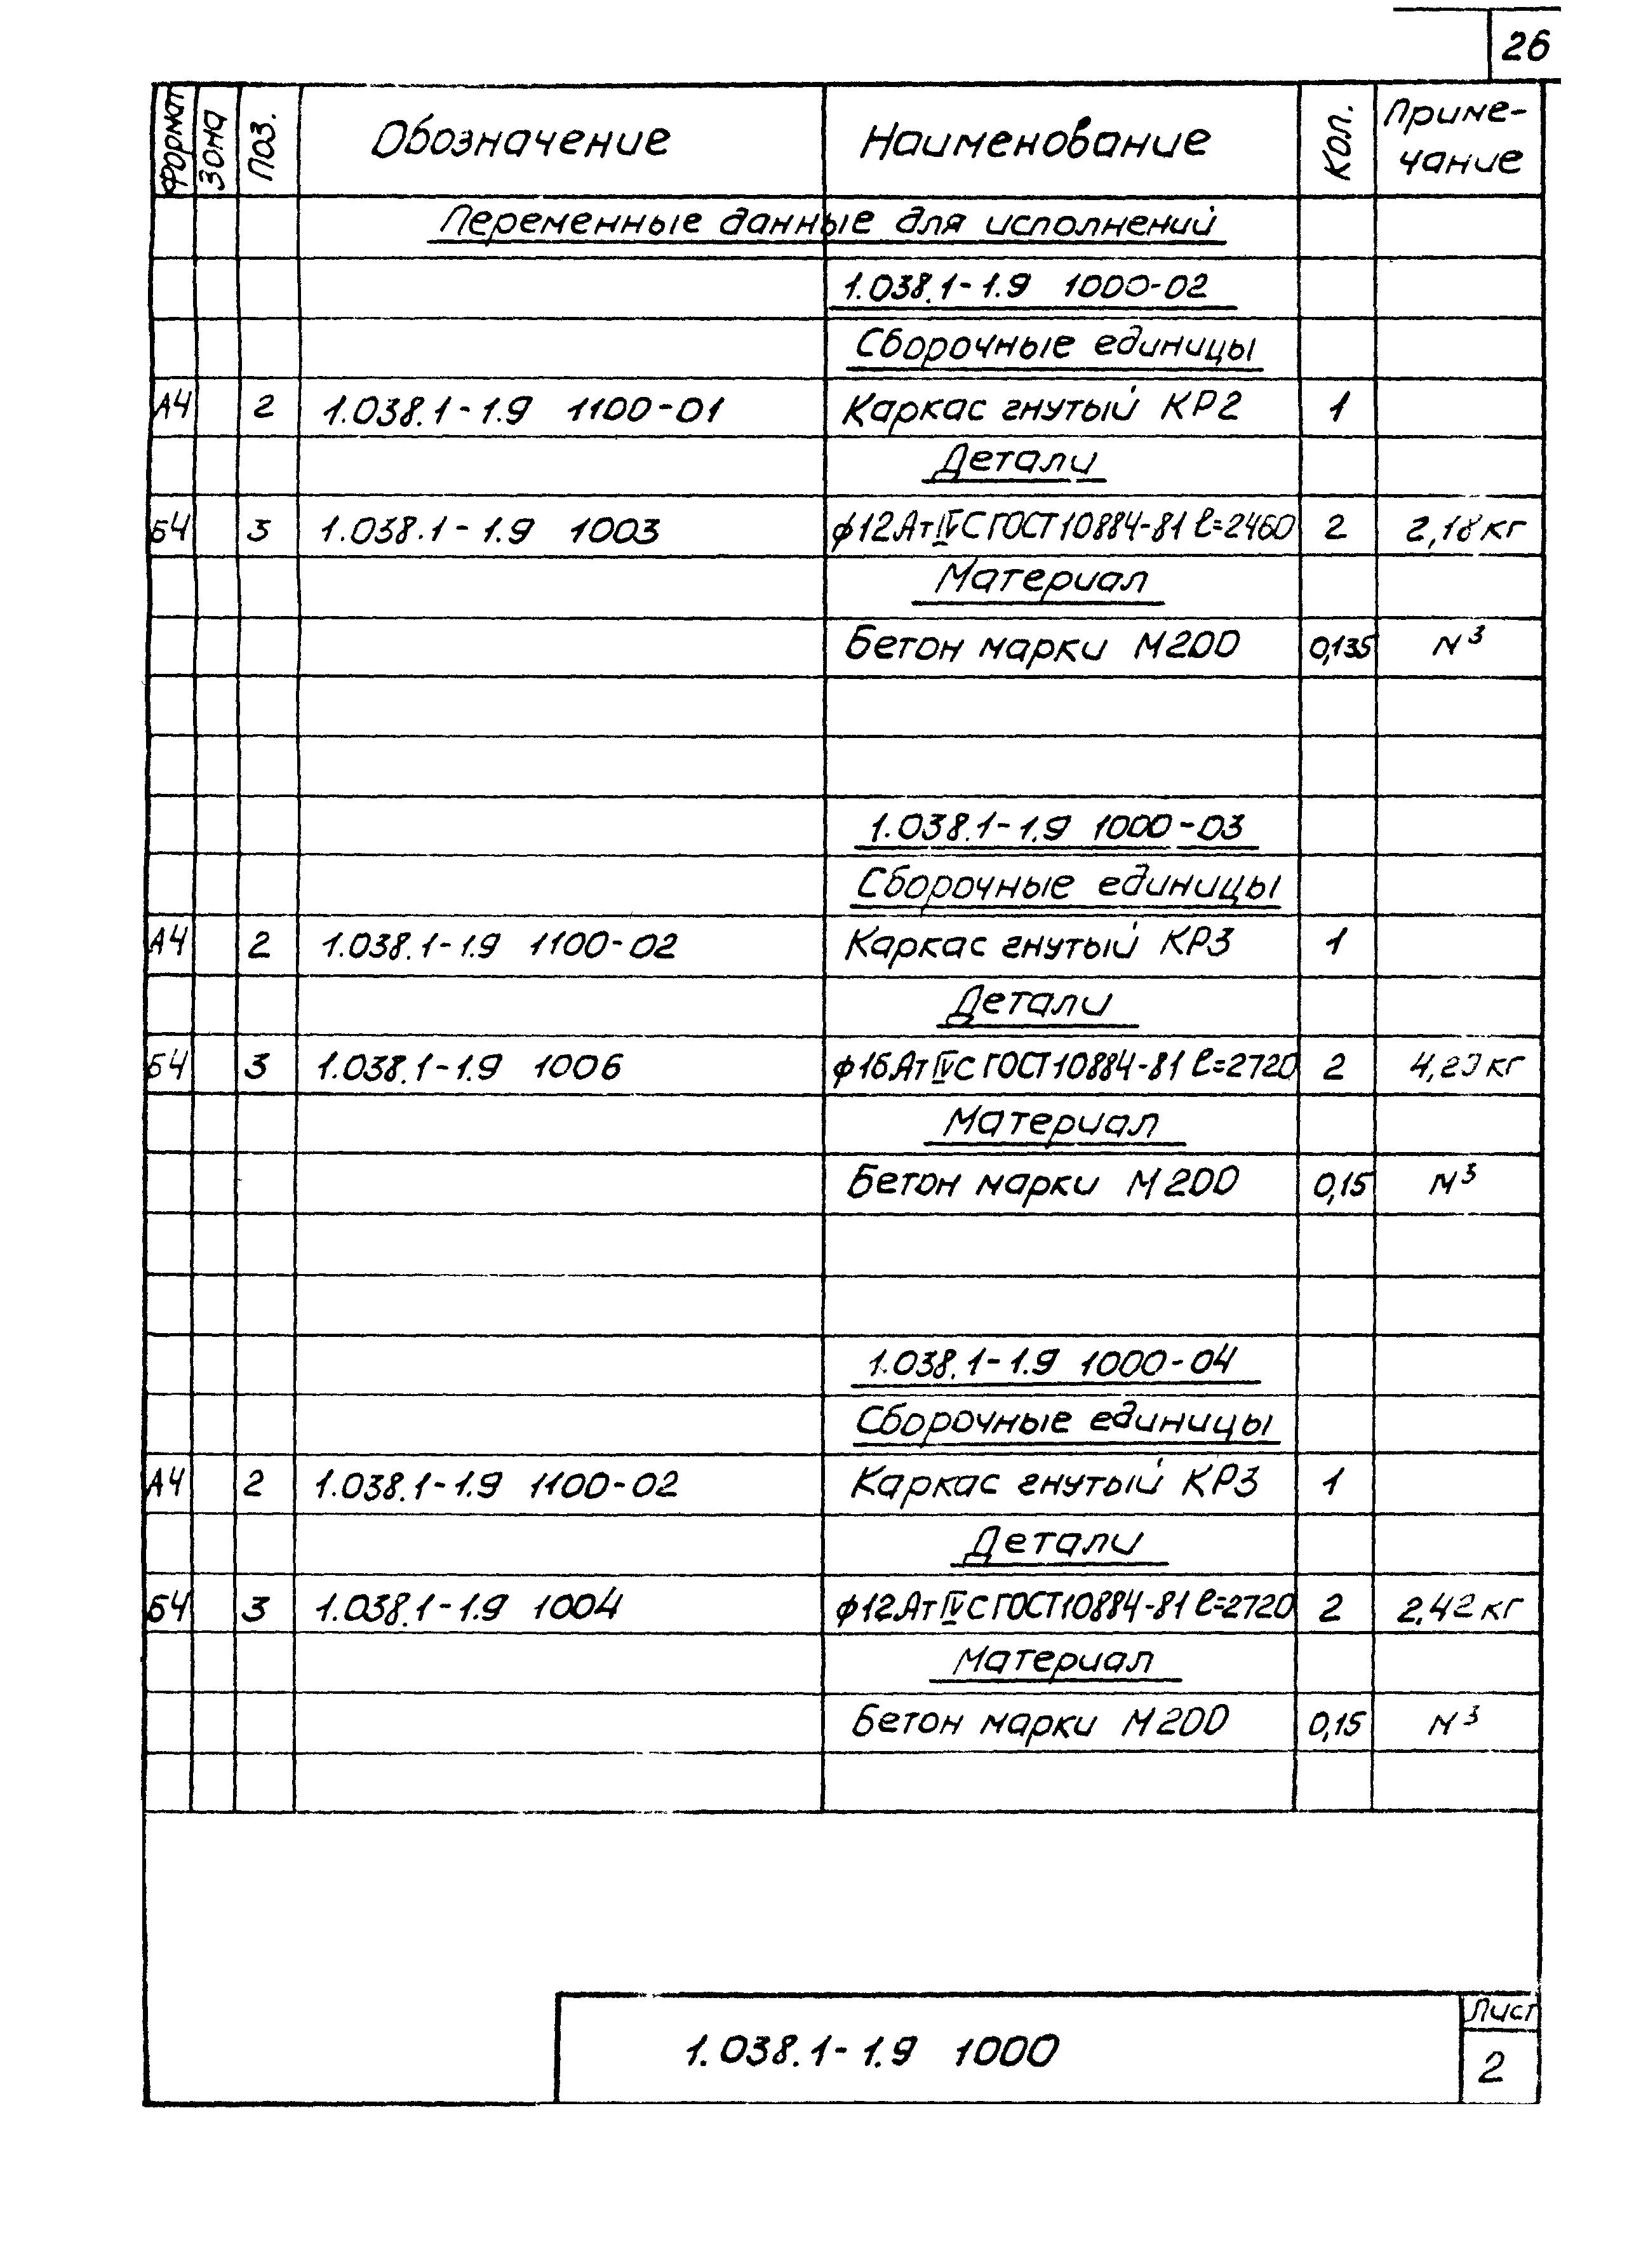 26
Формат Зона Поз. Обозначение Наименование Кол. Приме-
чание
Переменные данные для исполнений
1.038.1-1.9 1000-02
Сборочные единицы
А4 2 1.038.1-1.9 1100-01 Каркас гнутый КР2 1
Детали
Б4 3 1.038.1-1.9 1003 ф12АтIVС ГОСТ10884-81 ℓ=2460 2 2,18 кг
Материал
Бетон марки М200 0,135 м³
1.038.1-1.9 1000-03
Сборочные единицы
А4 2 1.038.1-1.9 1100-02 Каркас гнутый КР3 1
Детали
Б4 3 1.038.1-1.9 1006 ф16АтIVС ГОСТ10884-81 ℓ=2720 2 4,29 кг
Материал
Бетон марки М200 0,15 м³
1.038.1-1.9 1000-04
Сборочные единицы
А4 2 1.038.1-1.9 1100-02 Каркас гнутый КР3 1
Детали
Б4 3 1.038.1-1.9 1004 ф12АтIVС ГОСТ10884-81 ℓ=2720 2 2,42 кг
Материал
Бетон марки М200 0,15 м³
1.038.1-1.9 1000
Лист
2